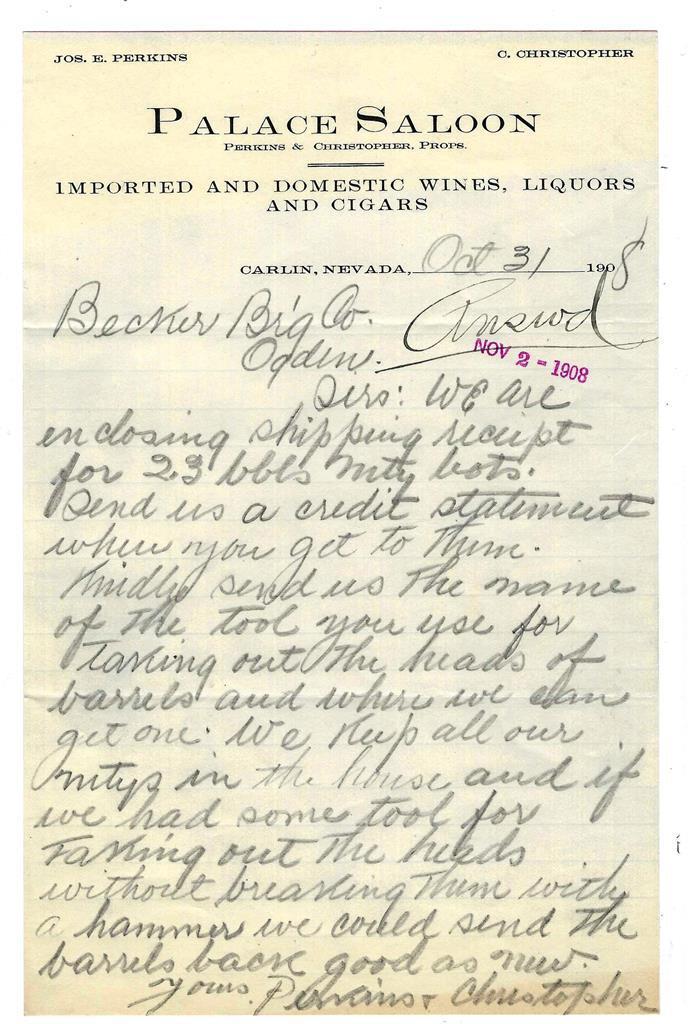 JOS. E. PERKINS C. CHRISTOPHER
PALACE SALOON
PERKINS & CHRISTOPHER, PROPS.
IMPORTED AND DOMESTIC WINES, LIQUORS
AND CIGARS
CARLIN, NEVADA, Oct 31 1908
Becker Br'g Co. Answd
Ogden. NOV 2 - 1908
Sirs: We are
enclosing shipping receipt
for 23 bbls mty bots.
Send us a credit statement
when you get to them.
Kindly send us the name
of the tool you use for
taking out the heads of
barrels and where we can
get one. We keep all our
mtys in the house and if
we had some tool for
taking out the heads
without breaking them with
a hammer we could send the
barrels back good as new.
Yours. Perkins & Christopher